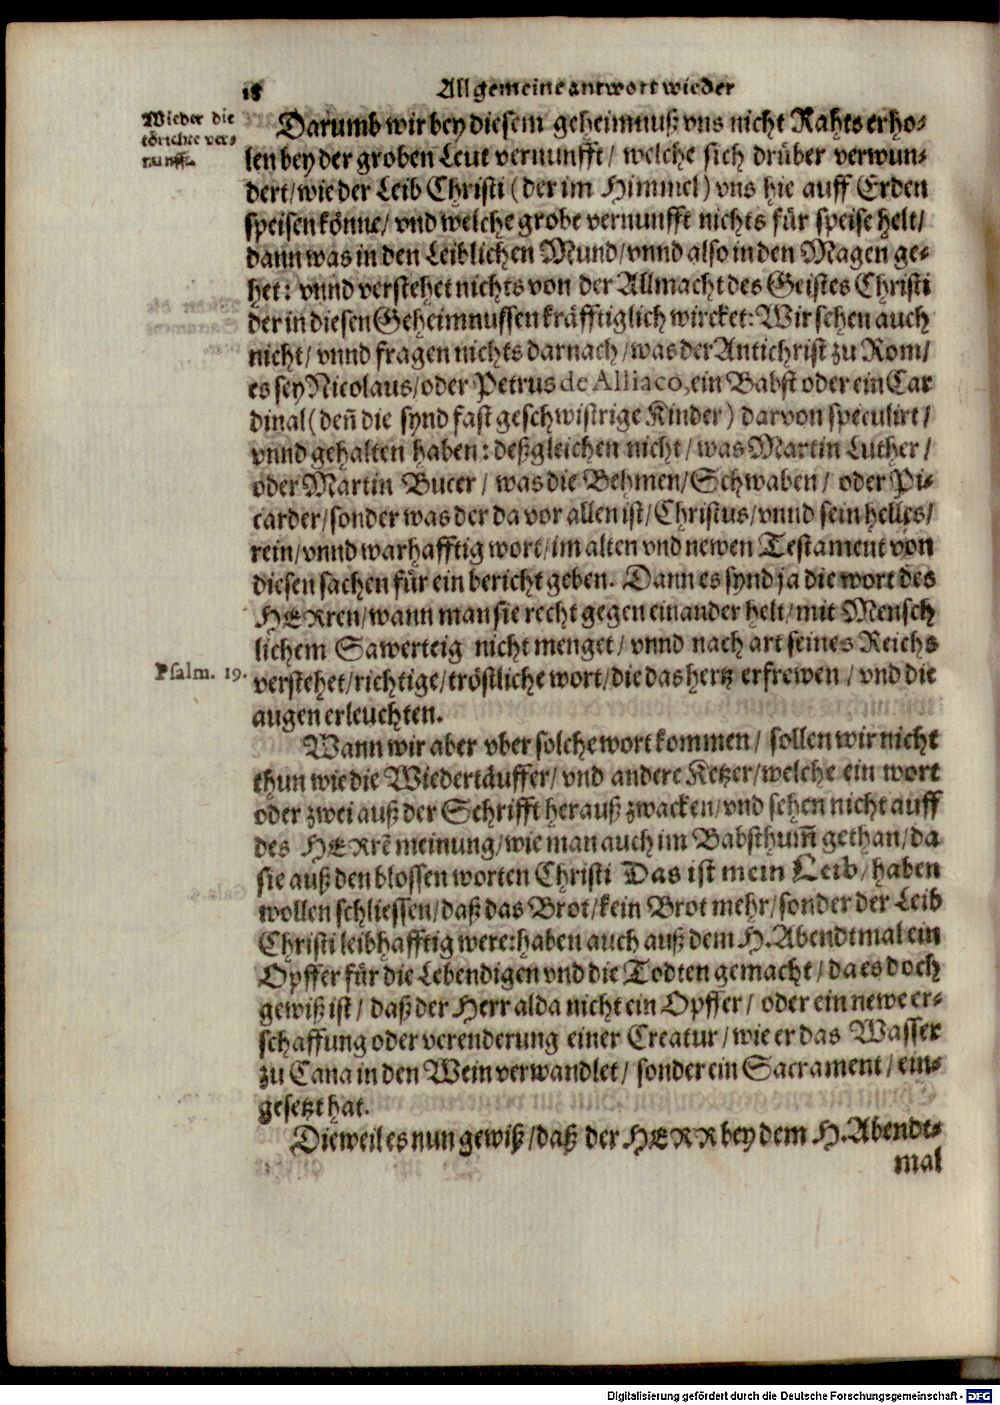 18 Allgemeine antwort wieder
Wieder die
törichte ver-
nunfft.
Darumb wir bey diesem geheimnuß vns nicht Rahts erho-
len bey der groben Leut vernunfft / welche sich drüber verwun-
dert / wie der Leib Christi (der im Himmel) vns hie auff Erden
speisen könne / vnd welche grobe vernunfft nichts für speise helt /
dann was in den Leiblichen Mund / vnnd also in den Magen ge-
het: vnnd verstehet nichts von der Allmacht des Geistes Christi
der in diesen Geheimnussen kräfftiglich wircket: Wir sehen auch
nicht / vnnd fragen nichts darnach / was der Antichrist zu Rom /
es sey Nicolaus / oder Petrus de Alliaco, ein Babst oder ein Car
dinal (deñ die synd fast geschwistrige Kinder) darvon speculirt /
vnnd gehalten haben: deßgleichen nicht / was Martin Luther /
oder Martin Bucer / was die Behmen / Schwaben / oder Pi-
carder / sonder was der da vor allen ist / Christus / vnnd sein helles /
rein / vnnd warhafftig wort / im alten vnd newen Testament von
diesen sachen für ein bericht geben. Dann es synd ja die wort des
HERren / wann man sie recht gegen einander helt / mit Mensch
lichem Sawerteig nicht menget / vnnd nach art seines Reichs
Psalm. 19.
verstehet / richtige / tröstliche wort / die das hertz erfrewen / vnd die
augen erleuchten.
Wann wir aber vber solche wort kommen / sollen wir nicht
thun wie die Wiedertäuffer / vnd andere Ketzer / welche ein wort
oder zwei auß der Schrifft herauß zwacken / vnd sehen nicht auff
des HERrẽ meinung / wie man auch im Babsthum̃ gethan / da
sie auß den blossen worten Christi Das ist mein Leib / haben
wollen schliessen / daß das Brot / kein Brot mehr / sonder der Leib
Christi leibhafftig were: haben auch auß dem H. Abendtmal ein
Opffer für die Lebendigen vnd die Todten gemacht / da es doch
gewiß ist / daß der Herr alda nicht ein Opffer / oder ein newe er-
schaffung oder verenderung einer Creatur / wie er das Wasser
zu Cana in den Wein verwandlet / sonder ein Sacrament / ein-
gesetzt hat.
Dieweil es nun gewiß / daß der HERR bey dem H. Abendt-
mal
Digitalisierung gefördert durch die Deutsche Forschungsgemeinschaft - DFG